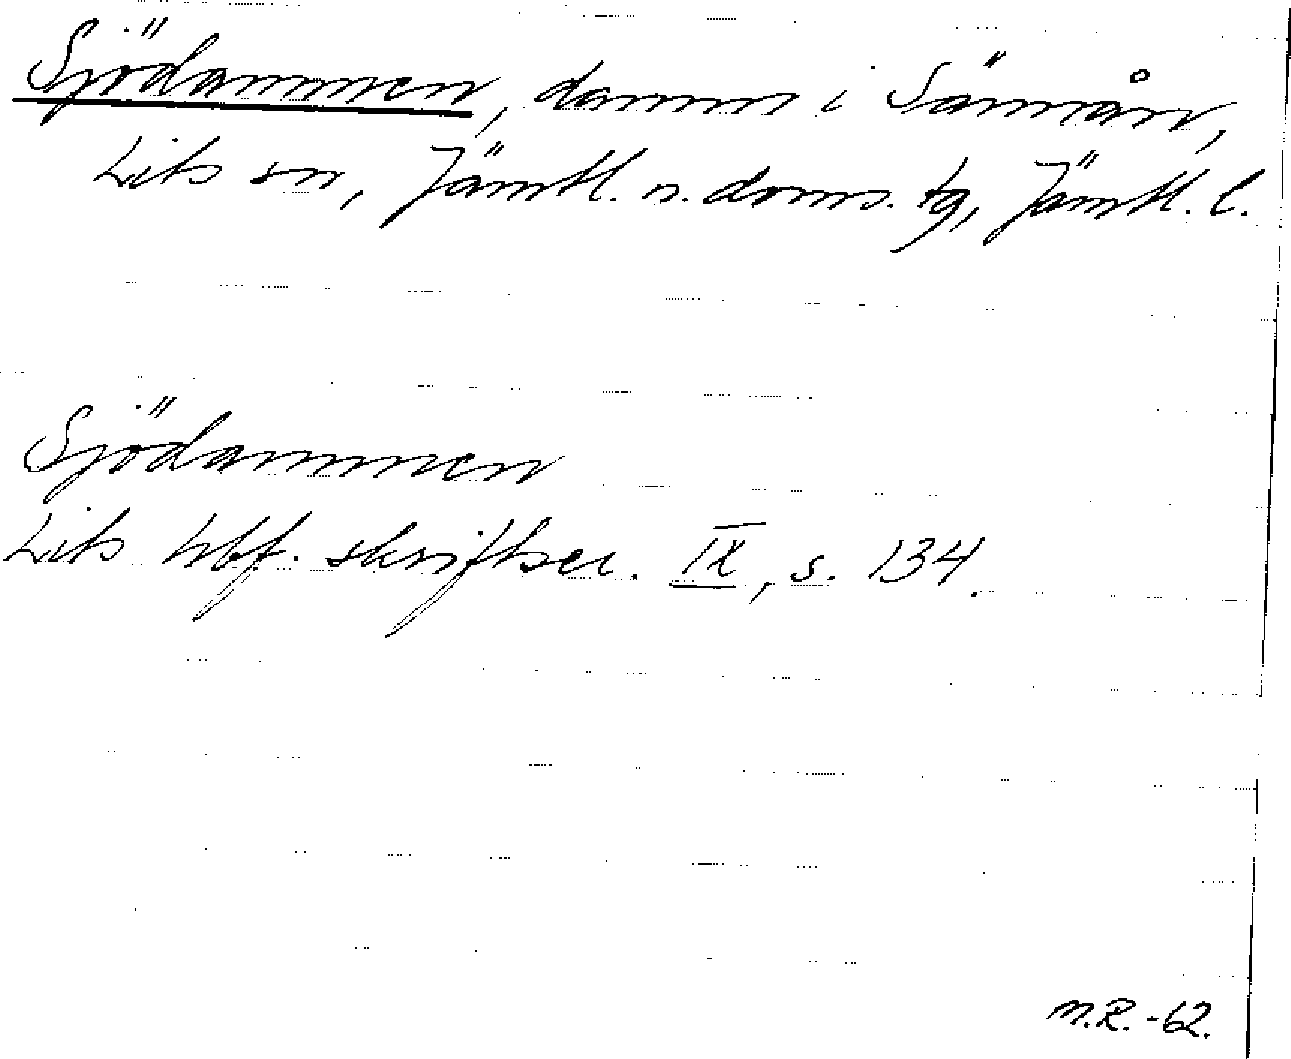 Sjödammen, damm i Sämån,
Lits sn, Jämtl. n. doms. tg, Jämtl. l.
Sjödammen
Lits hbf. skriftser. IX, s. 134.
M.R. -62.